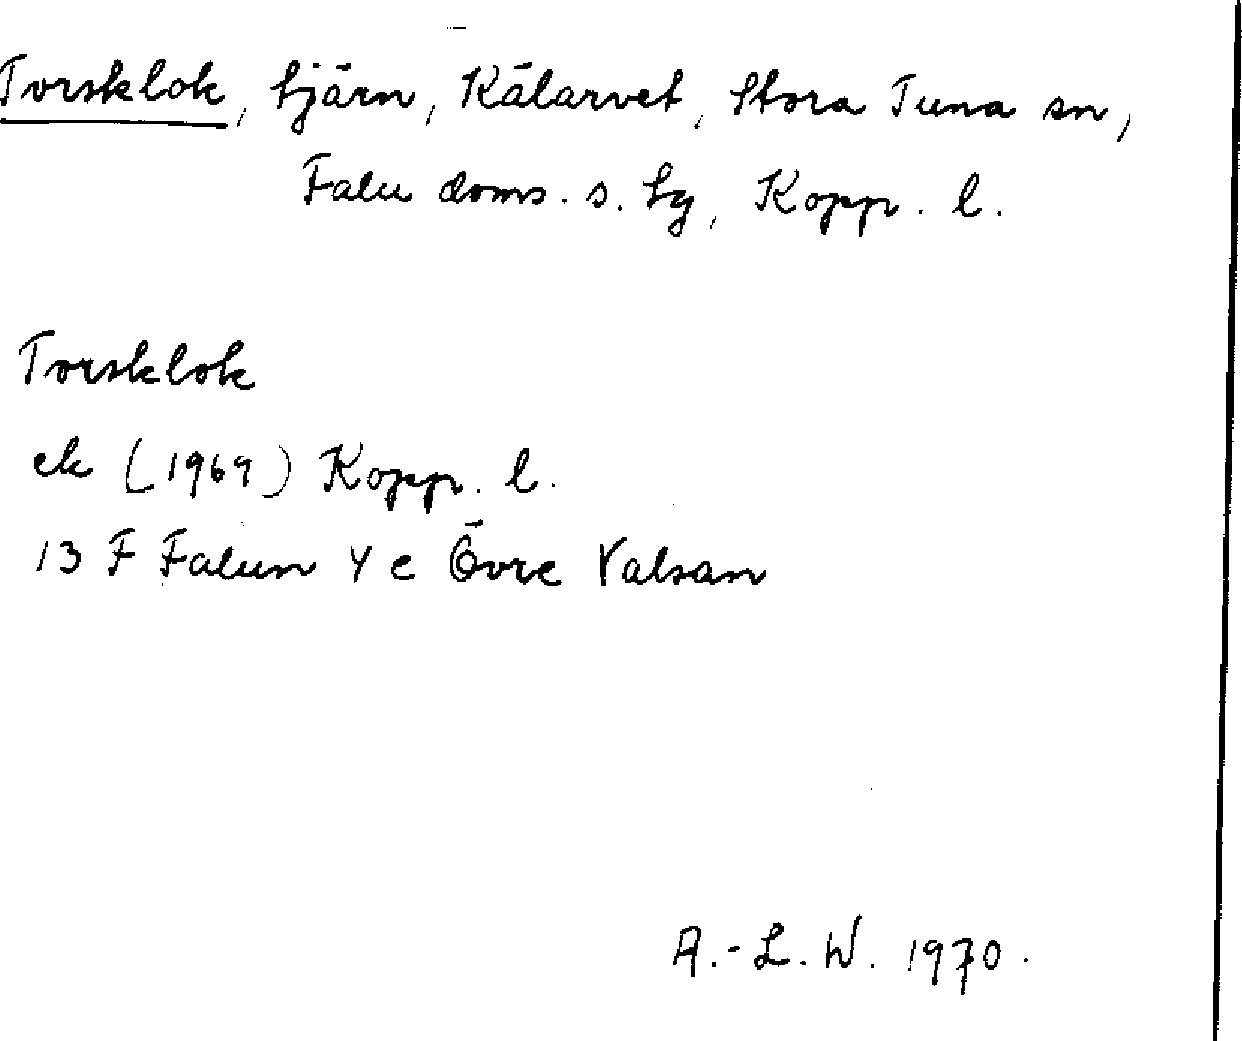 Torsklok, tjärn, Kälarvet, Stora Tuna sn,
Falu doms. s. tg, Kopp. l.
Torsklok
ek (1969) Kopp. l.
13 F Falun Y e Övre Valsan
A.-L. W. 1970.